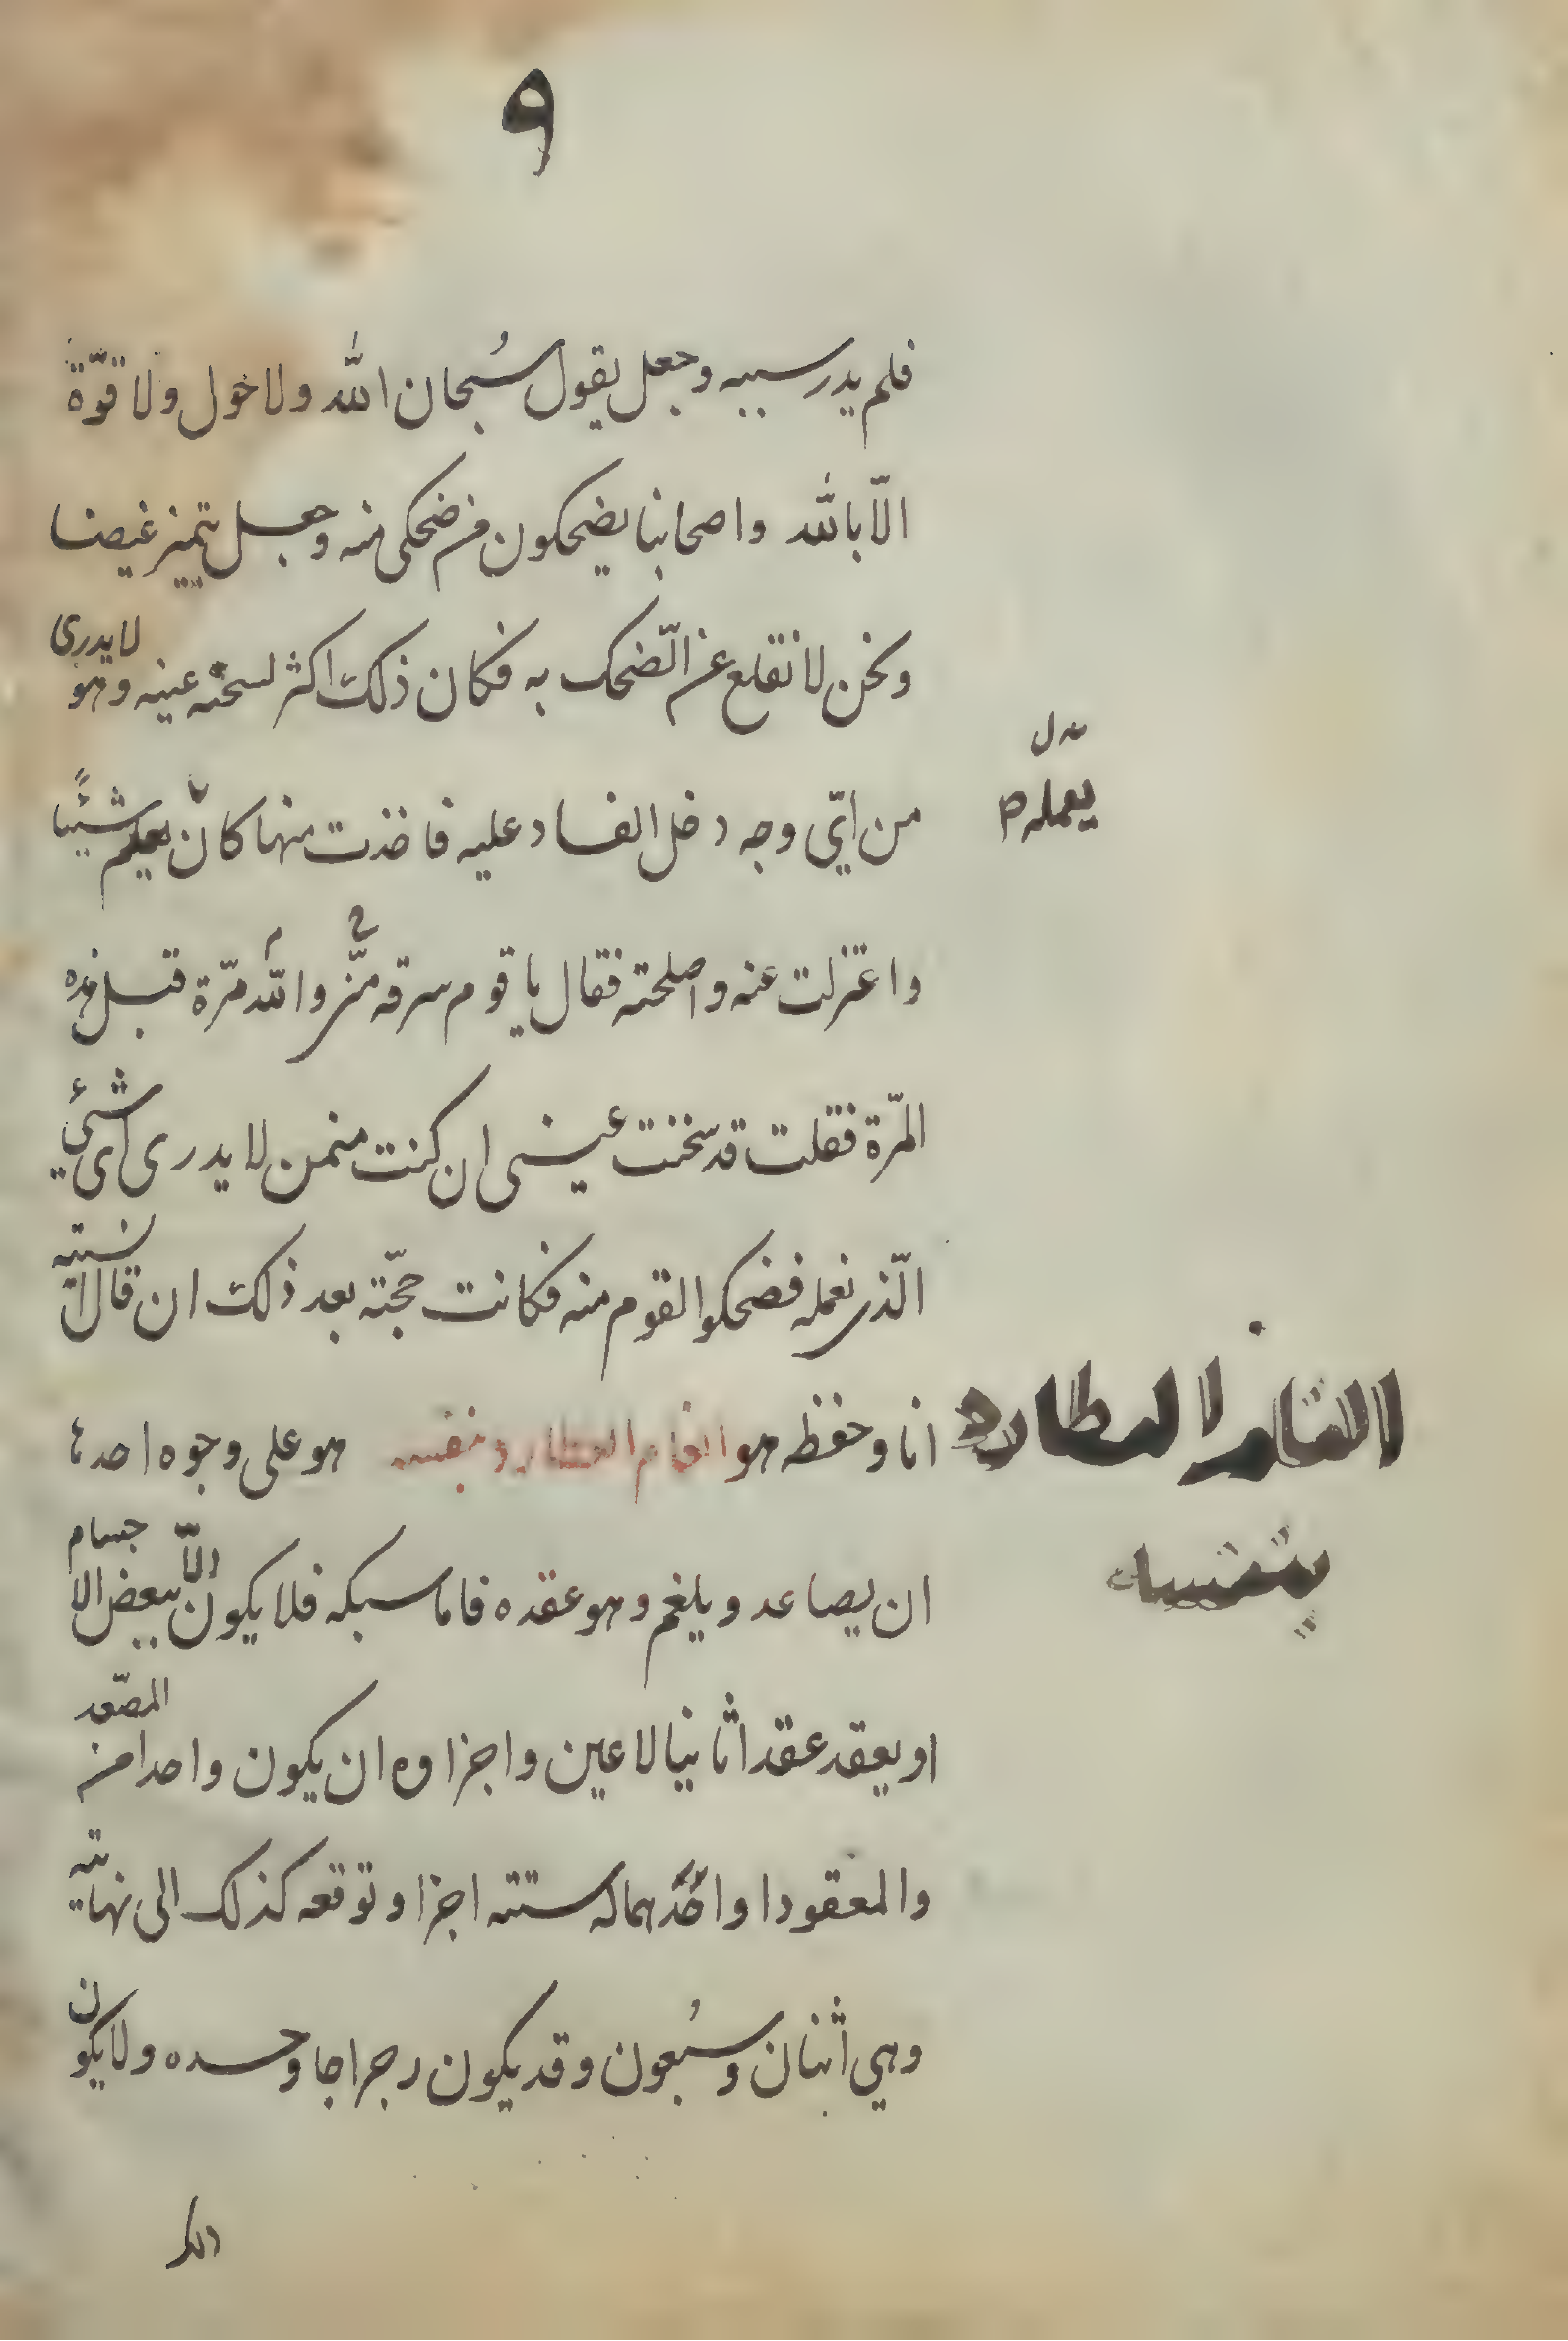 ٩
فلم يدر سببه وجعل يقول سُبحان الله ولا خول ولا قوّة
الّا بالله واصحابنا يضحكون من ضحكى منه وجعل يتميز غيضا
ونحن لا نقلع عن الّضحك به فكان ذلك اكثر لسخنه عينه وهو لا يدرى
من ايّ وجه دخل الفساد عليه فاخذت منها كان يعلم شيئًا
يعمله ص
واعتزلت عنه واصلحته فقال يا قوم سرقه منّى والله مرّة قبل هذه
المرّة فقلت قد سخنت عينى ان كنت منمن لا يدرى اى شئ
الّذى نعمله فضحكوا القوم منه فكانت حجّته بعد ذلك ان قال نسيته
انا وحفظه هو النار العطارد بنفسه هو على وجوه احدها
العطارد
بنفسه
ان يصاعد ويلغم وهو عقده فاما سبكه فلا يكون الّا ببعض الاجسام
او يعقد عقدا ثانيا لا عين واجزاوه ان يكون واحدا من المصّعد
والمعقود او احدهما له ستته اجزا وتوقعه كذلك الى نهايته
وهي اثنان وسُبعون وقد يكون رجراجا وحده ولا يكون